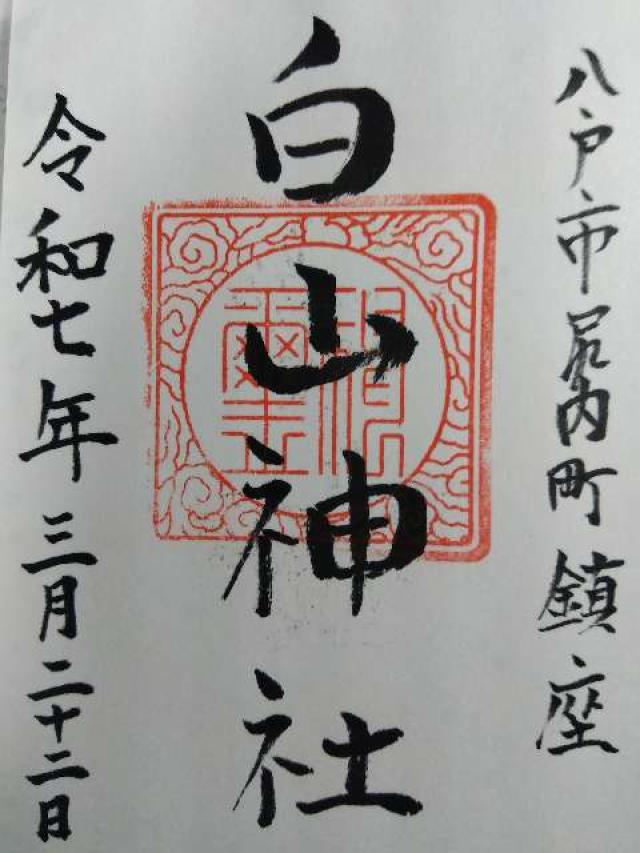 八戸市尻内町鎮座
白山神社
令和七年三月二十二日